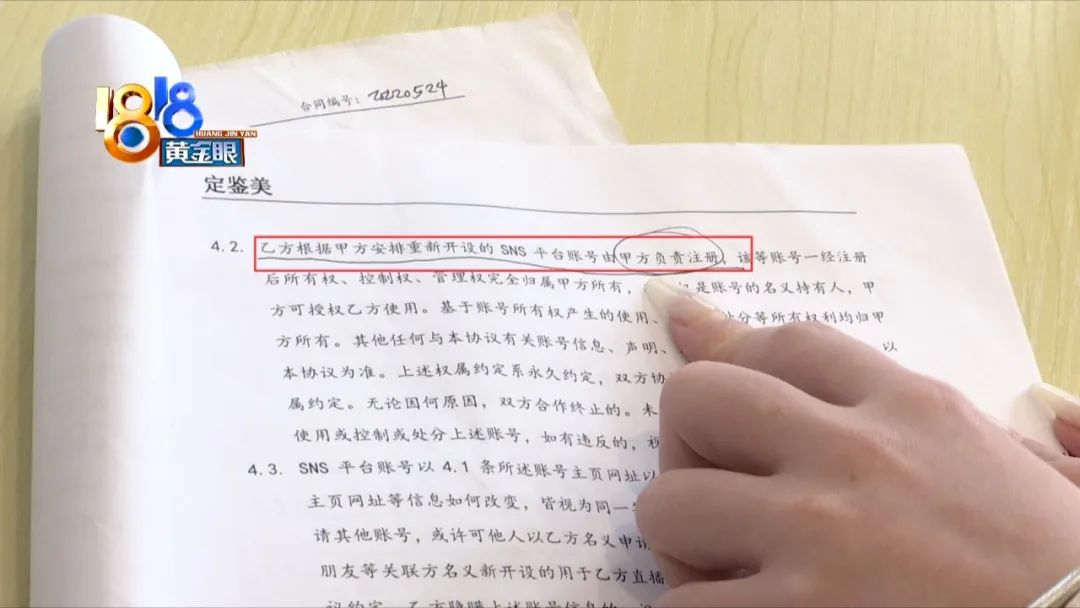 1818
HUANG JIN YAN
黄金眼
合同编号: 20220524
定鉴美
4.2. 乙方根据甲方安排重新开设的 SNS 平台账号由甲方负责注册, 该等账号一经注册
后所有权、控制权、管理权完全归属甲方所有, 是账号的名义持有人, 甲
方可授权乙方使用。基于账号所有权产生的使用、 处分等所有权利均归甲
方所有。其他任何与本协议有关账号信息、声明、 以
本协议为准。上述权属约定系永久约定, 双方协
属约定。无论因何原因, 双方合作终止的。未
使用或控制或处分上述账号, 如有违反的, 视
4.3. SNS 平台账号以 4.1 条所述账号主页网址以
主页网址等信息如何改变, 皆视为同一
请其他账号, 或许可他人以乙方名义申请
朋友等关联方名义新开设的用于乙方直播
议约定。乙方隐瞒上述账号信息的